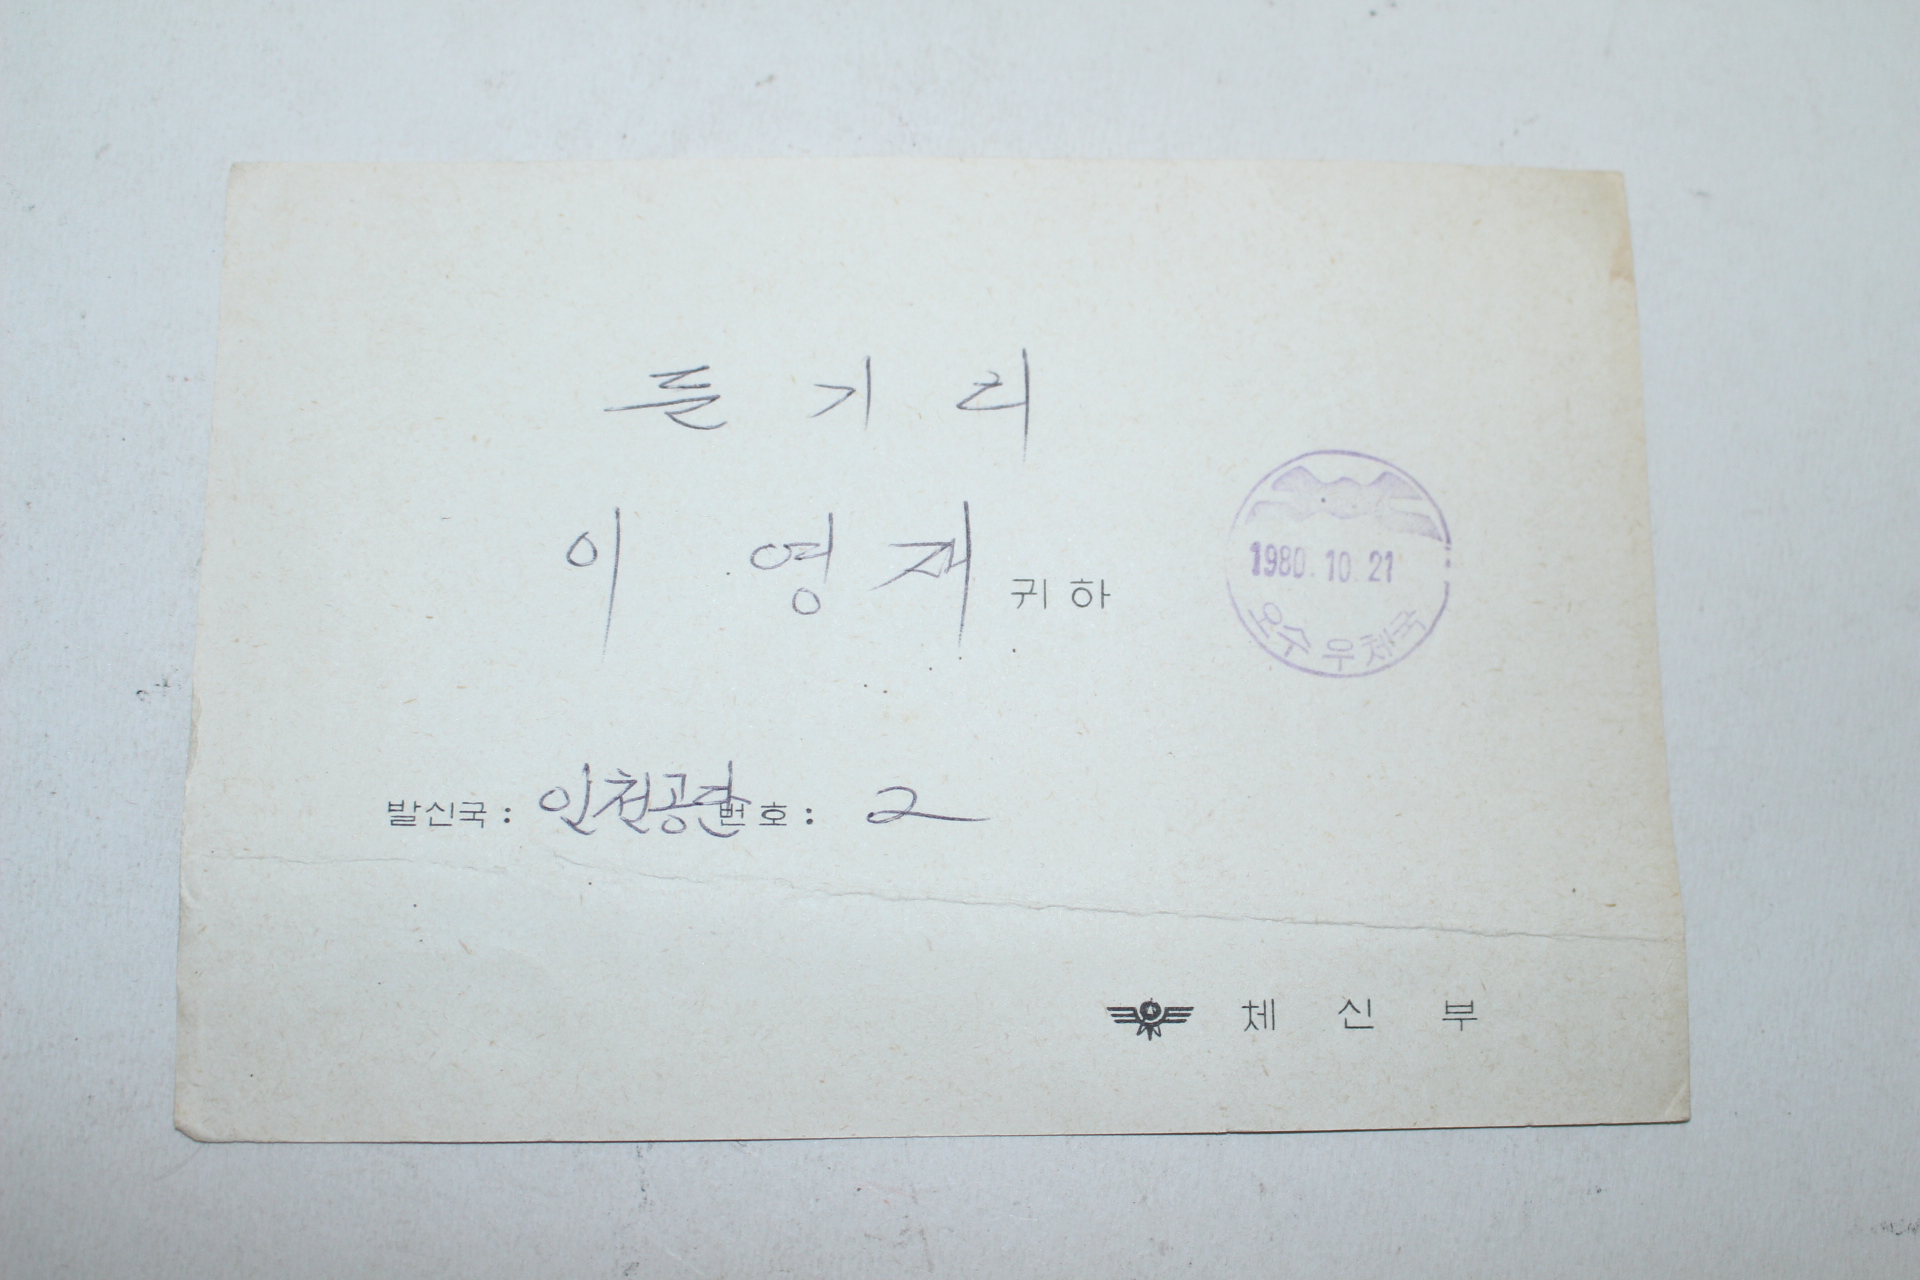 둔기리
이 영재 귀하
1980. 10. 21
오수우체국
발신국: 인천공단 번호: 2
체신부